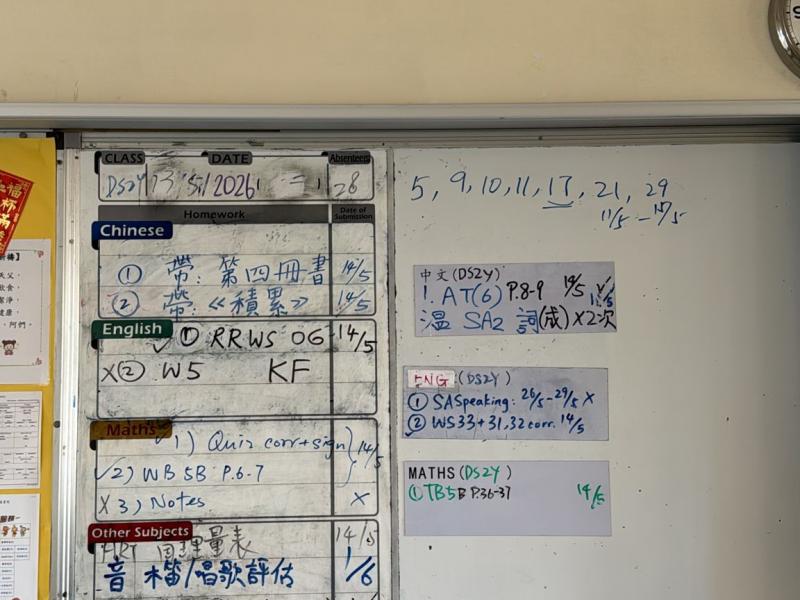 CLASS DATE Absentees
DS2Y 13/5/2026 28
Homework Date of Submission
Chinese
① 帶：第四冊書 14/5
② 帶：《積累》 14/5
English
✓ ① RRWS 06 14/5
X ② W5 KF
Maths
✓ 1) Quiz corr+sign
✓ 2) WB 5B P.6-7 } 14/5
X 3) Notes X
Other Subjects
量表 14/5
音 木笛/唱歌評估 1/6
5, 9, 10, 11, 17, 21, 29
11/5 - 15/5
中文(DS2Y)
1. AT(6) P.8-9 14/5
溫 SA2 詞(成)X2次
ENG (DS2Y)
① SASpeaking: 26/5-29/5 X
② WS33+31,32 corr. 14/5
MATHS (DS2Y)
① TB5B P.36-37 14/5
福
杯
滿
天父，
飲食，
潔淨，
健康，
，阿們。